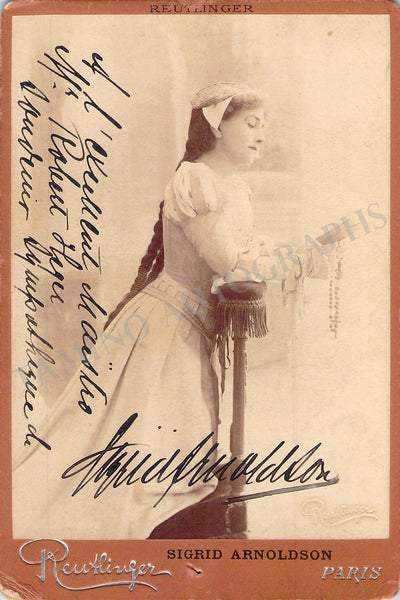 REUTLINGER
A l'excellent Maëstro
Mr Robert
Souvenir Sympathique de
Sigrid Arnoldson
Reutlinger
TAMINO AUTOGRAPHS
Reutlinger
SIGRID ARNOLDSON
PARIS